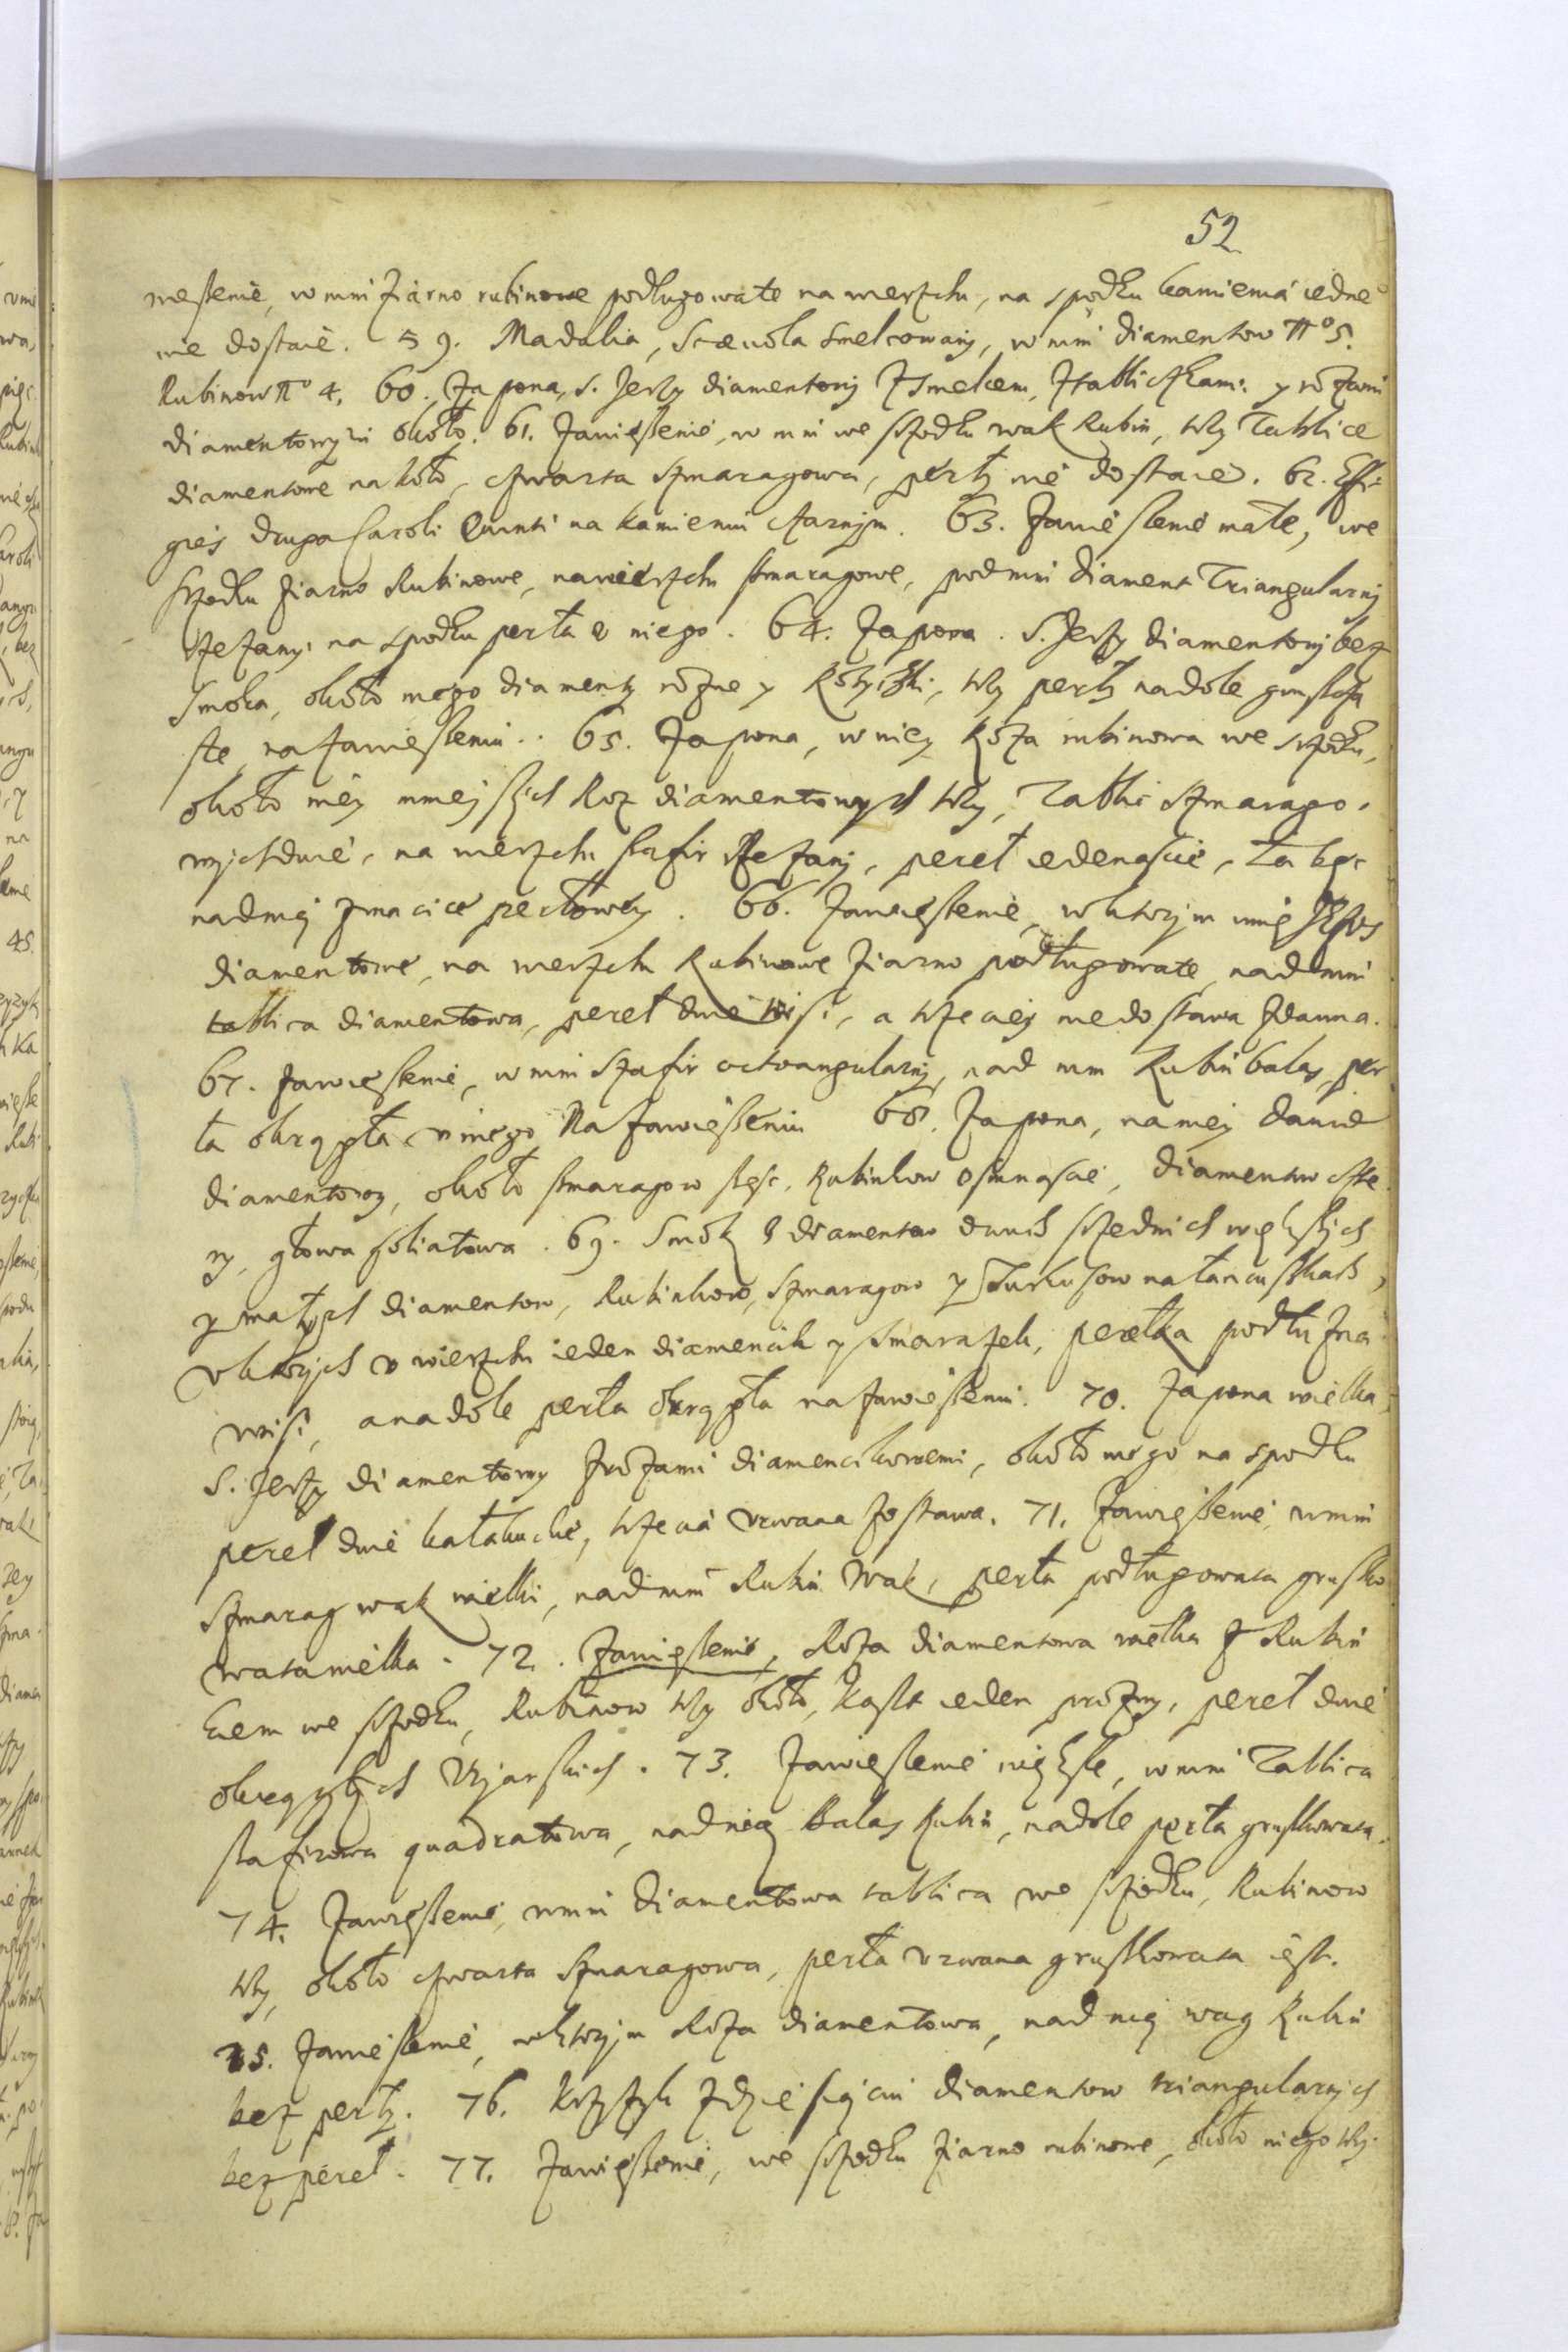 52
weszenie, w nim ziarno rubinowe podługowate na wierzchu, na spodku kamienia iedne°
nie dostaie. 59. Madalia, Scævola smelcowany, w nim diamentow n° 5.
Rubinow n° 4. 60. Zapona, S. Jerzy diamentowy z smelcem, z tabliczkami y różami
diamentowymi około. 61. Zawieszenie, w nim we szrodku wak Rubin, trzy Tablice
diamentowe na koło, czwarta szmaragowa, perły nie dostaie. 62. Effi-
gies druga Caroli Quinti na kamieniu czarnym. 63. Zawieszenie małe, we
szrodku ziarno Rubinowe, na wierzchu szmaragowe, pod nim diament Triangularny
rzezany, na spodku perła u niego. 64. Zapona. S. Jerzy diamentowy bez
smoka, około niego diamenty rożne y Rożyczki, trzy perły na dole gruszcza
ste na zawieszeniu. 65. Zapona, w niey Roża rubinowa we szrodku,
około niey mnieyszych Roz diamentowych trzy, Tablic szmarago-
wych dwie, na wierzchu szafir rzezany, pereł iedenaście,
nad nią macice perłowey. 66. Zawieszenie, w ktorym imię
diamentowe, na wierzchu Rubinowe ziarno podługowate, nad nim
tablica diamentowa, pereł dwie wisi, a trzeciey nie dostawa zdawna.
67. Zawieszenie, w nim szafir octoangularny, nad nim Rubin balas, per
ła okrągła u niego Na zawieszeniu 68. Zapona, na niey Dawid
diamentowy, około szmaragow szesc, Rubinkow osmnascie, diamentow czte
ry, głowa Goliatowa. 69. Smok z diamentow dwuch szrednich więtszych
y małych diamentow, Rubinkow, szmaragow y Turkusow na łancuszkach,
u ktorych u wierzchu ieden diamencik y smarażek, perełka podłużna
wisi, a na dole perła okrągła na zawieszeniu. 70. Zapona wielka,
S. Jerzy diamentowy z rożami diamencikowemi, około niego na spodku
pereł dwie kałakuckie, trzecia urwana zostawa. 71. Zawieszenie, w nim
szmarag wak wielki, nad nim Rubin wak, perła podługowata gruszko
wata wielka. 72. Zawieszenie, Roża diamentowa wielka z Rubin
kiem we szrodku, Rubinow trzy około, kaszt ieden prożny, pereł dwie
okrągłych Uryanskich. 73. Zawieszenie więtsze, w nim Tablica
szafirowa quadratowa, nad nią Balas Rubin, na dole perła gruszkowata.
74. Zawieszenie, w nim diamentowa tablica we szrodku, Rubinow
trzy, około czwarta szmaragowa, perła urwana gruszkowata iest.
75. Zawieszenie, w ktorym Roża diamentowa, nad nią wag Rubin
bez perły. 76. Krzyżyk z dziesięcią diamentow triangularnych
bez pereł. 77. Zawieszenie, we szrodku ziarno rubinowe, około niego trzy